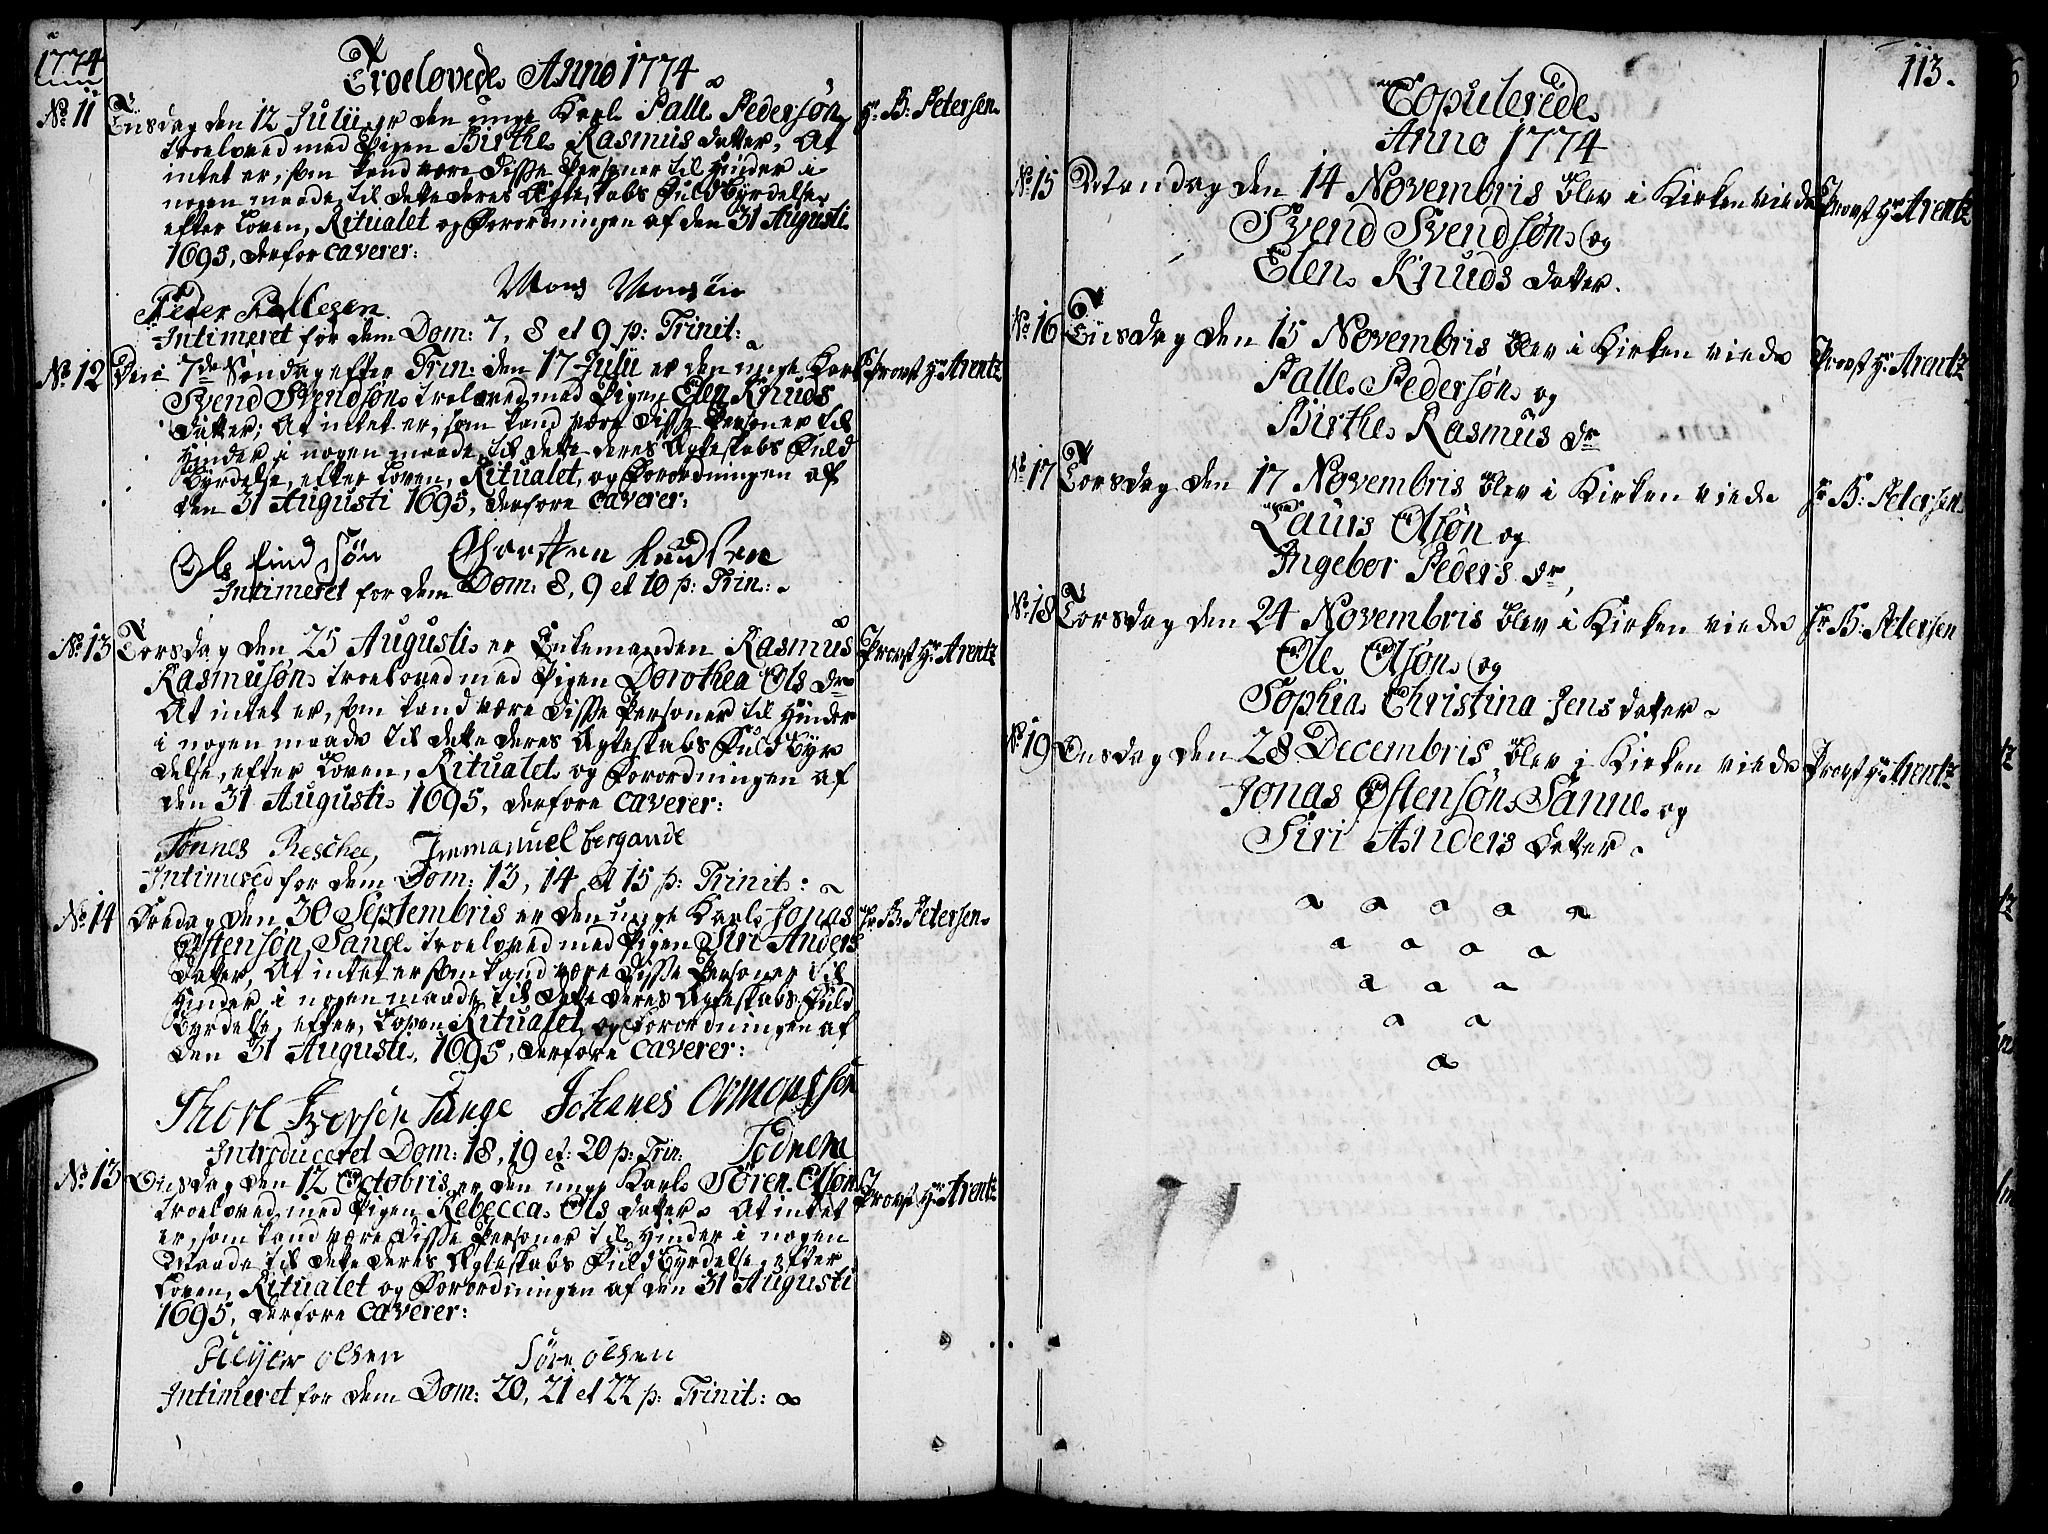 1774
Troelovede Anno 1774
No 11 Tiisdag den 12 Julii er den unge Karl Palle Pedersøn Hr. B: Petersen
troeloved med Pigen Birthe Rasmus datter, At
intet er, som kand være disse Personer til Hinder i
nogen maade til dette deres Ægteskabs Fuldbyrdelse
efter Loven, Ritualet og Forordningen af den 31 Augusti
1695, derfor caverer:
Mons Monsøn
Peder Pallesen
Intimeret for dem Dom: 7, 8 et 9 p: Trinit:
No 12 Den 7de Søndag efter Trin: den 17 Julii er den unge Karl Provst Hr Arentz
Svend Svendsøn troeloved med Pigen Elen Knuds
datter; At intet er, som kand være disse Personer til
Hinder i nogen maade til dette deres Ægteskabs Fuld
byrdelse, efter Loven, Ritualet, og Forordningen af
den 31 Augusti 1695, derfore caverer:
Ole find Søn Thorsten Knudsen
Intimeret for dem Dom: 8, 9 et 10 p: Trin:
No 13 Torsdag den 25 Augusti er Enkemanden Rasmus Provst Hr Arentz
Rasmusøn troeloved med Pigen Dorothea Ols dr
At intet er, som kand være disse Personer til Hinder
i nogen maade til dette deres Ægteskabs Fuldbyr
delse, efter Loven, Ritualet og Forordningen af
den 31 Augusti 1695, derfore caverer:
Tønnes Reschee, Immanuel bergande
Intimered for dem Dom: 13, 14 et 15 p: Trinit:
No 14 Fredag den 30 Septembris er den unge Karl Jonas Hr B: Petersen
Østensøn Sande troeloved med Pigen Siri Anders
datter, At intet er som kand være disse Personer til
Hinder i nogen maade til dette deres Ægteskabs Fuld
byrdelse, efter Loven Ritualet og Forordningen af
den 31 Augusti, 1695, derfore caverer:
Thore Iversen Tange Johanes Ormonssen
Introduceret Dom: 18, 19 et: 20 p: Trin: Todnem
No 13 Onsdag den 12 Octobris er den unge Karl Søren Olsøn Provst Hr Arentz
troeloved med Pigen Rebecca Ols datter At intet
er, som kand være disse Personer til Hinder i nogen
Maade til dette deres Ægteskabs Fuldbyrdelse, efter
Loven, Ritualet og Forordningen af den 31 Augusti
1695, derfore caverer:
olsen Søre olsen
Intimeret for dem Dom: 20, 21 et 22 p: Trinit:
113.
Copulerede
Anno 1774
No 15 Mandag den 14 Novembris blev i Kirken viede Provst Hr Arentz
Svend Svendsøn og
Elen Knuds datter.
No 16 Tiisdag den 15 Novembris blev i Kirken viede Provst Hr Arentz
Palle Pedersøn og
Birthe Rasmus dr
No 17 Torsdag den 17 Novembris blev i Kirken viede Hr B: Petersen
Laurs Olsøn og
Ingebor Peders dr,
No 18 Torsdag den 24 Novembris blev i Kirken viede Hr B: Petersen
Ole Olsøn og
Sophia Christina Jens datter
No 19 Onsdag den 28 Decembris blev i Kirken viede Provst Hr Arentz
Jonas Østensøn Sanne og
Siri Anders datter